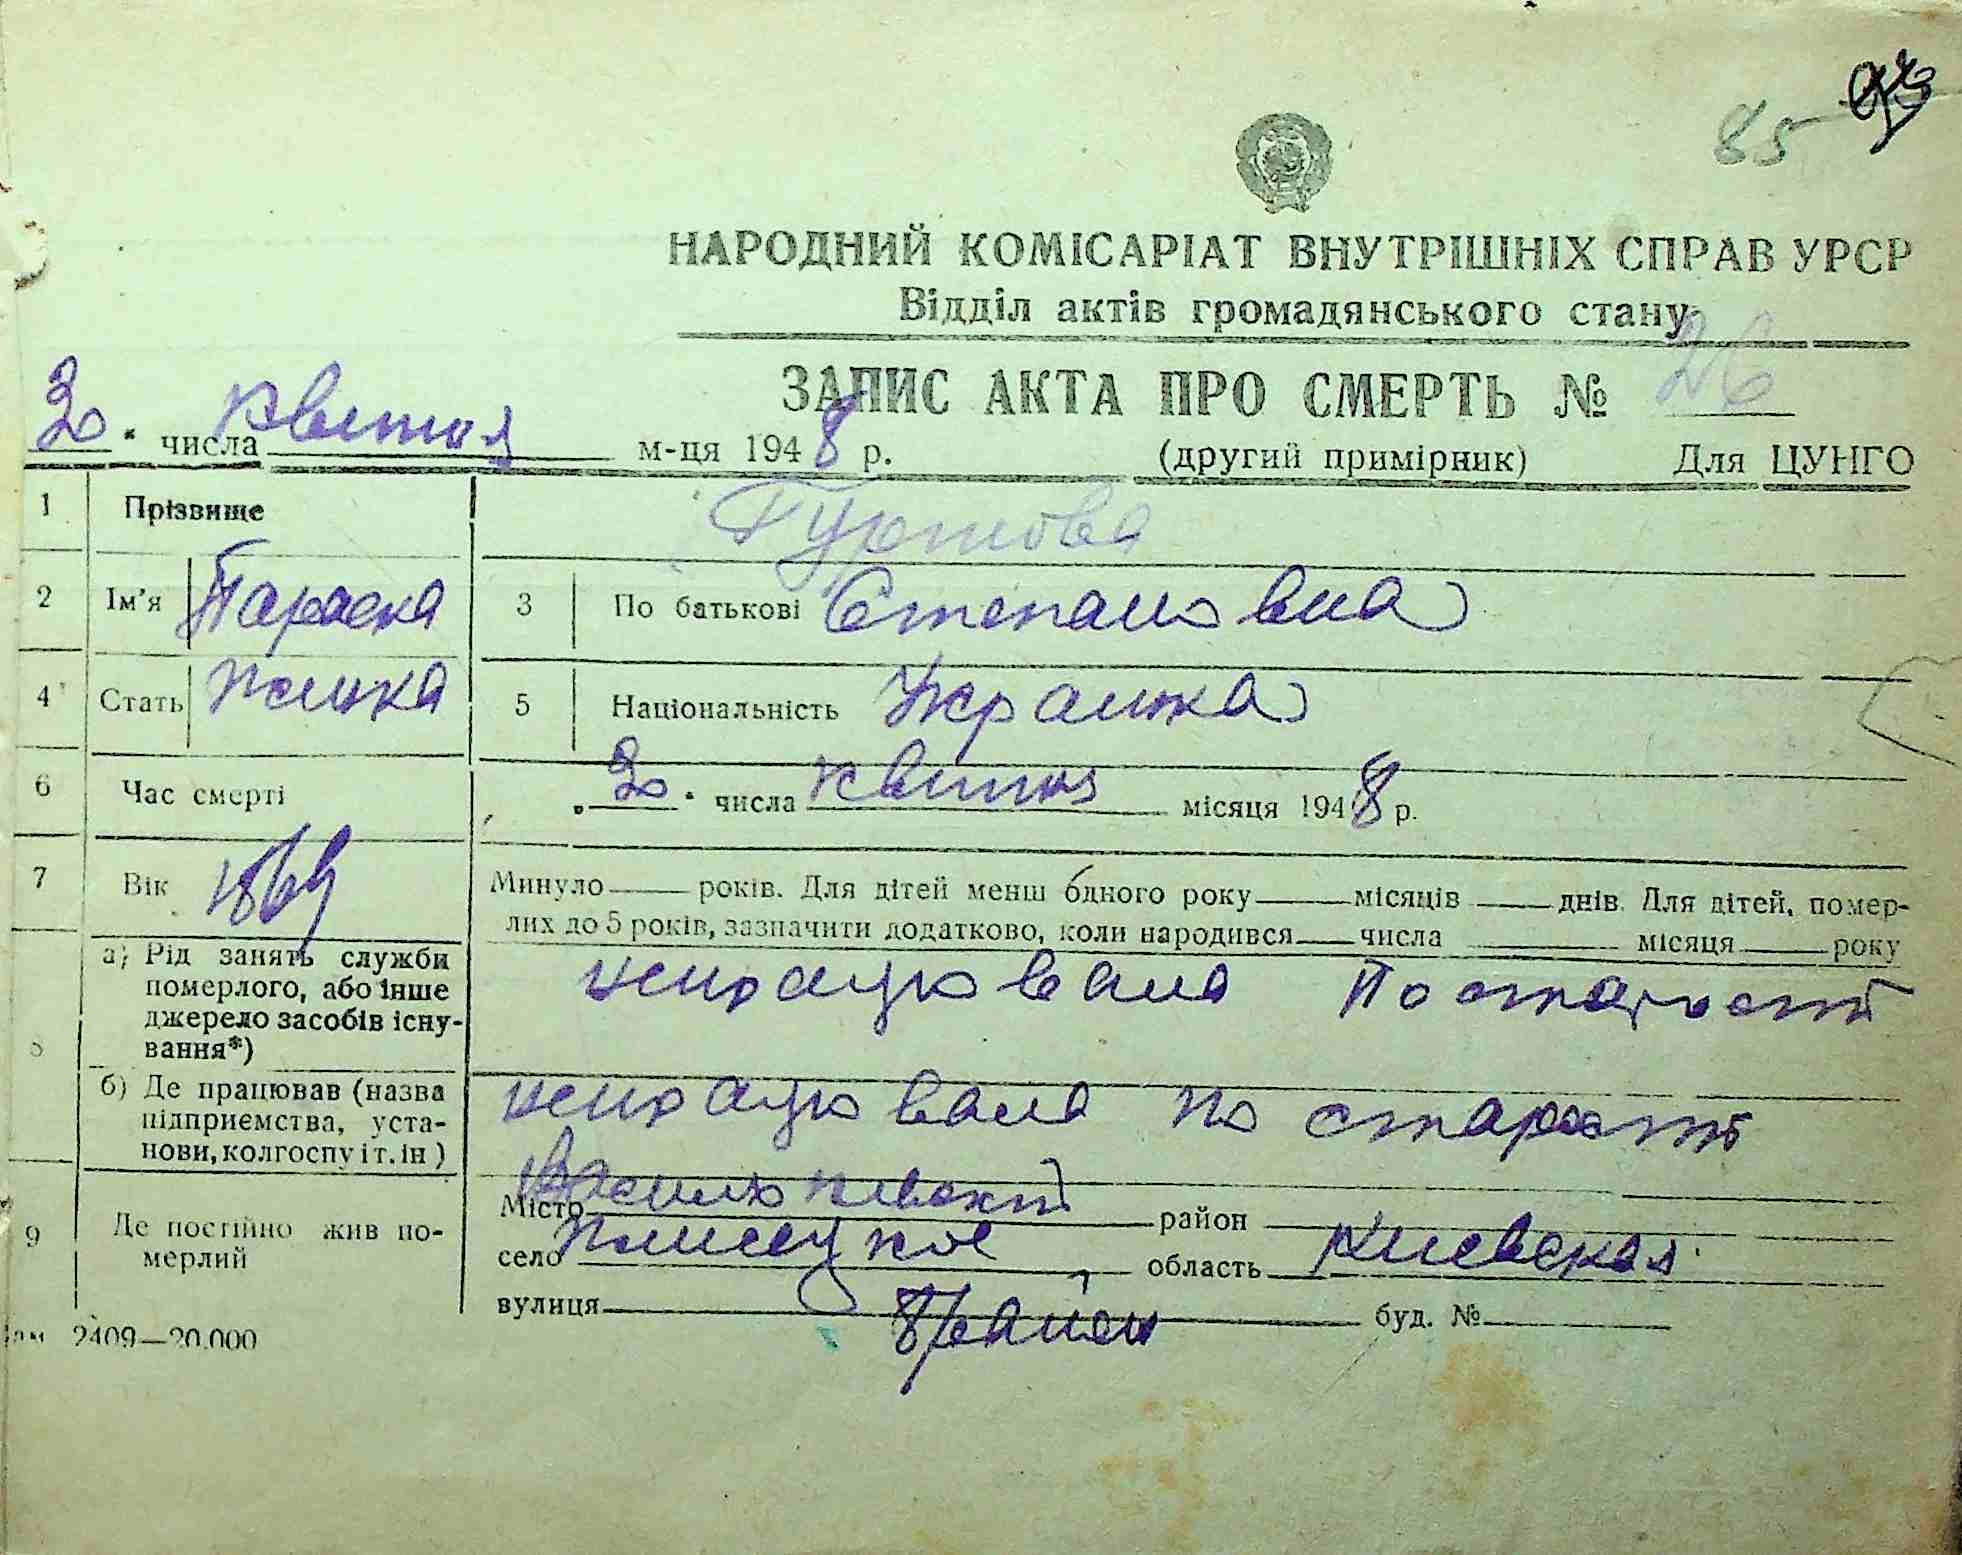 85
НАРОДНИЙ КОМІСАРІАТ ВНУТРІШНІХ СПРАВ УРСР
Відділ актів громадянського стану
ЗАПИС АКТА ПРО СМЕРТЬ № 26
30 " числа квитня м-ця 1948 р. (другий примірник) Для ЦУНГО
1 Прізвище Гуртова
2 Ім'я Параска 3 По батькові Степановна
4 Стать жинка 5 Національність Украинка
6 Час смерті „ 30 " числа квитня місяця 1948 р.
7 Вік 1869 Минуло років. Для дітей менш одного року місяців днів. Для дітей, помер-
лих до 5 років, зазначити додатково, коли народився числа місяця року
8 а) Рід занять служби
померлого, або інше
джерело засобів існу-
вання*)
непрацювала По старости
б) Де працював (назва
підприємства, уста-
нови, колгоспу і т. ін)
непрацювала по старости
9 Де постійно жив по-
мерлий
Місто район
село Плисецкое область Киевская
вулиця буд. № 
район
Зам 2409—20.000